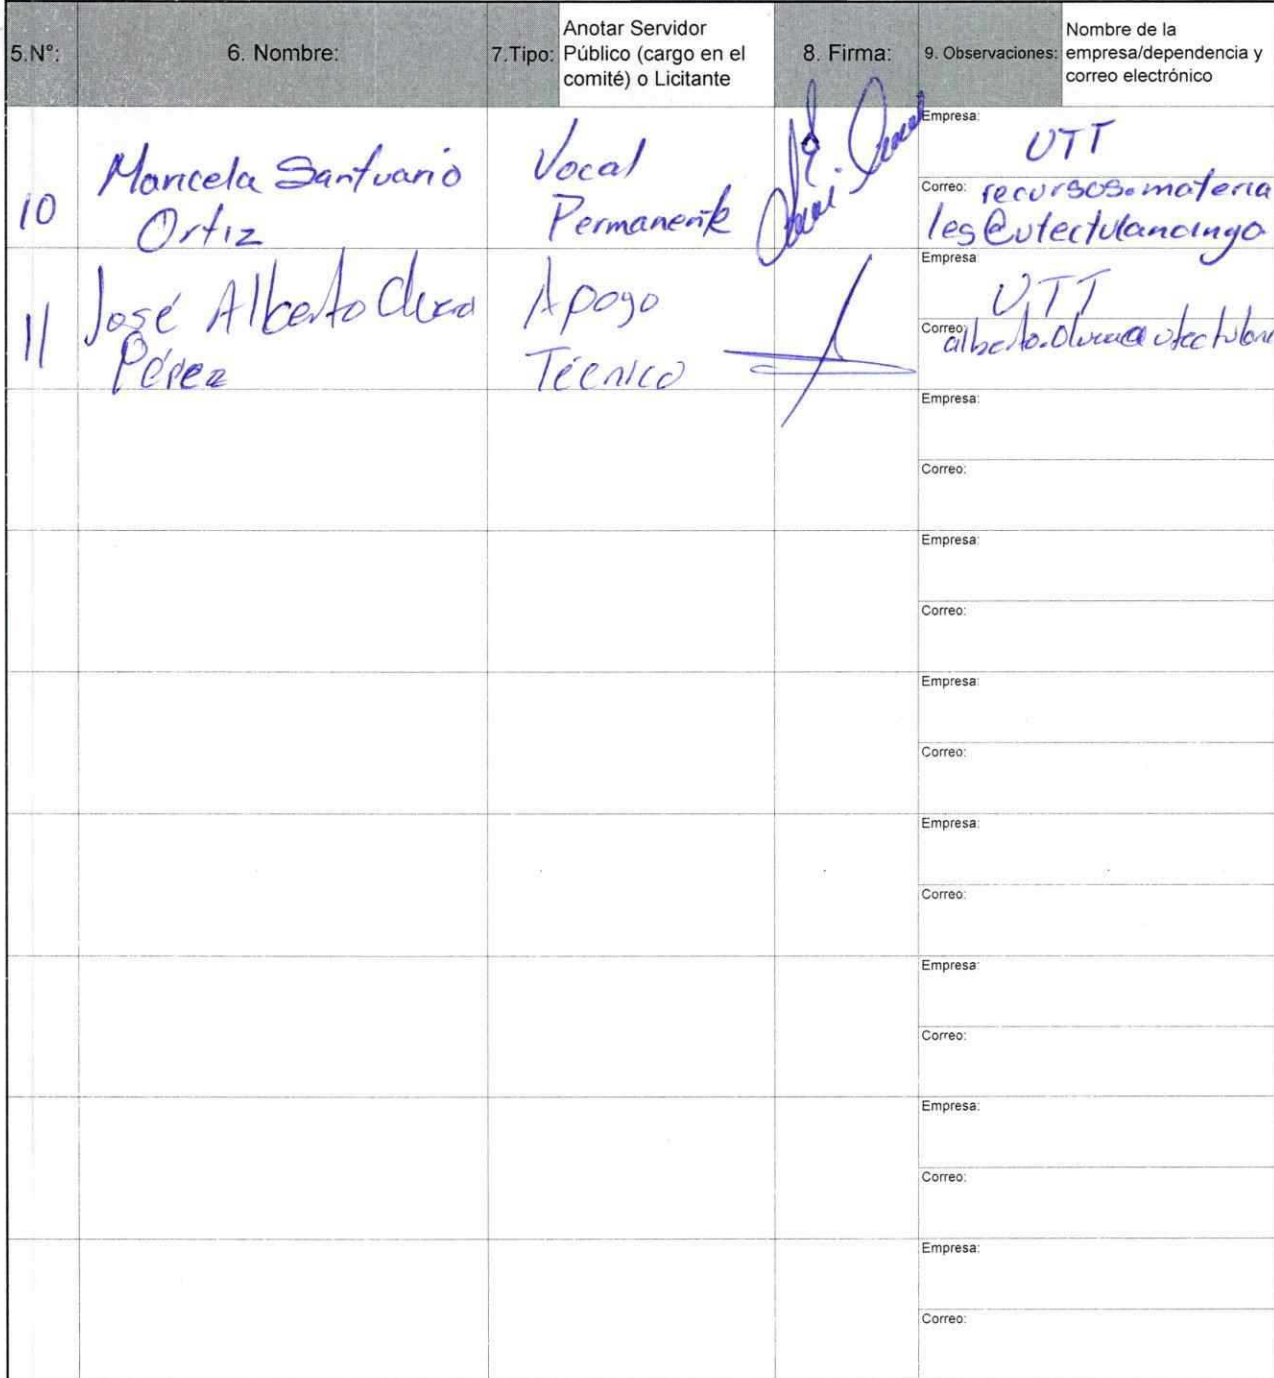 5.N°:
6. Nombre:
7.Tipo:
Anotar Servidor
Público (cargo en el
comité) o Licitante
8. Firma:
9. Observaciones:
Nombre de la
empresa/dependencia y
correo electrónico
10
Maricela Santuario
Ortiz
Vocal
Permanente
Empresa:
UTT
Correo: recursos.materia
les@utectulancingo
11
José Alberto
Pérez
Apoyo
Técnico
Empresa:
UTT
Correo:
Empresa:
Correo:
Empresa:
Correo:
Empresa:
Correo:
Empresa:
Correo:
Empresa:
Correo:
Empresa:
Correo:
Empresa:
Correo: